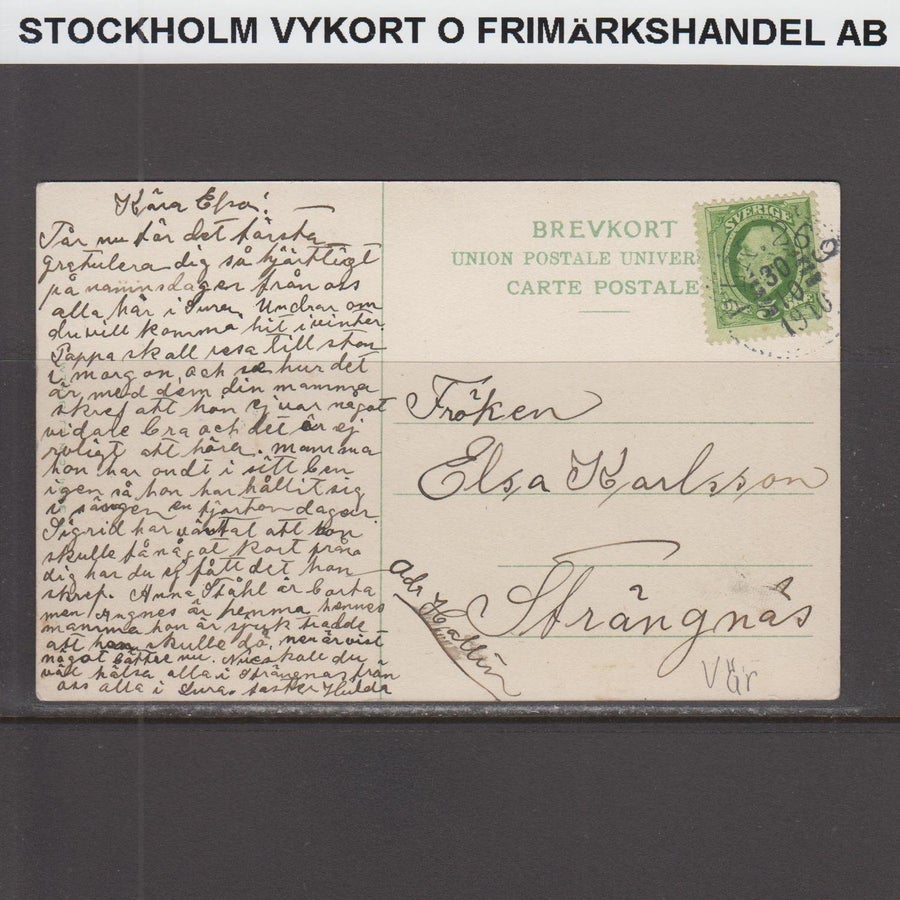 STOCKHOLM VYKORT O FRIMÄRKSHANDEL AB
Kära Elsa!
Får nu för det första
gratulera dig så hjärtligt
på namnsdagen från oss
alla här i Sura. Undrar om
du vill komma hit i vinter.
Pappa skall resa till ston
i morgon, och se hur det
är med dem din mamma
skref att hon ej var något
vidare bra och det är ej
roligt att höra. mamma
hon har ondt i sitt ben
igen så hon har hållit sig
i sängen en fjorton dagar.
Sigrid har väntat att hon
skulle få något kort från
dig har du ej fått det hon
skref. Anna Ståhl är borta
men Angnes är hemma hennes
mamma hon är sjuk trodde
att hon skulle dö, men är vist
något bättre nu. Nu skall du
väl hälsa alla i Strängnäs från
oss alla i Sura. faster Hulda
BREVKORT
UNION POSTALE UNIVER
CARTE POSTALE
SVERIGE
30
10
1910
Fröken
Elsa Karlsson
Strängnäs
adr
Vär